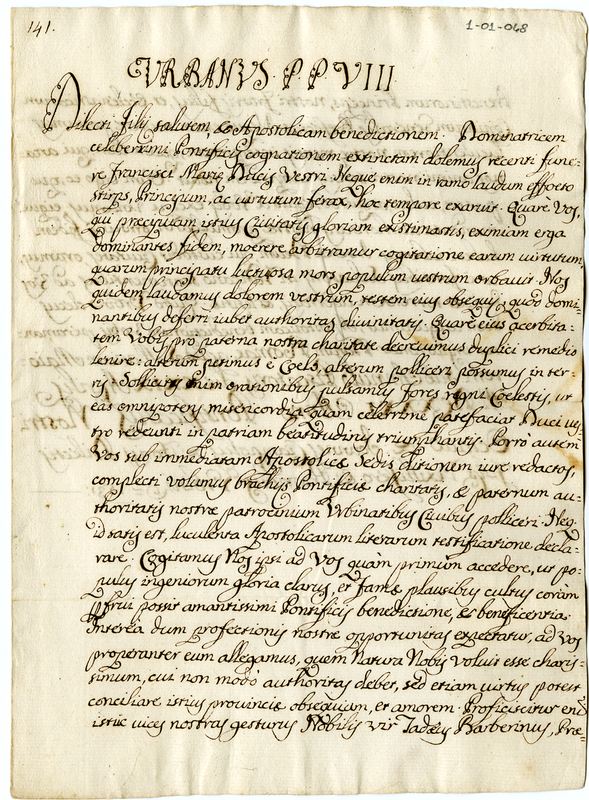 141.
1-01-048
VRBANVS P P VIII
Dilecti Filij salutem, & Apostolicam benedictionem. Nominatricem
celeberrimi Pontificis cognationem extinctam dolemus recenti fune-
re Francisci Mariæ Ducis Vestri. Neque enim in ramo laudum effoeto
stirps, Principum, ac virtutum ferax, hoc tempore exaruit. Quarè Vos,
qui præcipuam istius Ciuitatis gloriam existimastis, eximiam erga
dominantes fidem, moerere arbitramur cogitatione earum uirtutum,
quarum principatu luctuosa mors populum uestrum orbauit. Nos
quidem laudamus dolorem vestrum, testem eius obsequij, quod domi=
nantibus deferri iubet authoritas diuinitatis. Quare eius acerbita=
tem Vobis pro paterna nostra charitate decreuimus duplici remedio
lenire: alterum petimus è Coelo, alterum polliceri possumus in ter-
ris. Sollicitis enim orationibus pulsamus fores regni Coelestis, ut
eas omnipotens misericordia quàm celerrimè patefaciat Duci ues
tro redeunti in patriam beatitudinis triumphantis. Porrò autem
Vos sub immediatam Apostolicæ Sedis ditionem iure redactos,
complecti volumus brachijs Pontificiæ charitatis, & paternum au-
thoritatis nostræ patrocinium Vrbinatibus Ciuibus polliceri. Neq.
id satis est, luculenta Apostolicarum literarum testificatione decla-
rare. Cogitamus Nos ipsi ad Vos quàm primùm accedere, ut po-
pulus ingeniorum gloria clarus, et Famæ plausibus cultus coràm
pfrui possit amantissimi Pontificis benedictione, & beneficentia.
Interea dum profectionis nostræ opportunitas expectatur, ad Vos
properanter eum allegamus, quem Natura Nobis voluit esse charis=
simum, cui non modò authoritas debet, sed etiam uirtus potest
conciliare istius prouinciæ obsequium, et amorem. Proficiscitur eni
istùc uices nostras gesturus Nobilis vir Tadæus Barberinus, Præ=